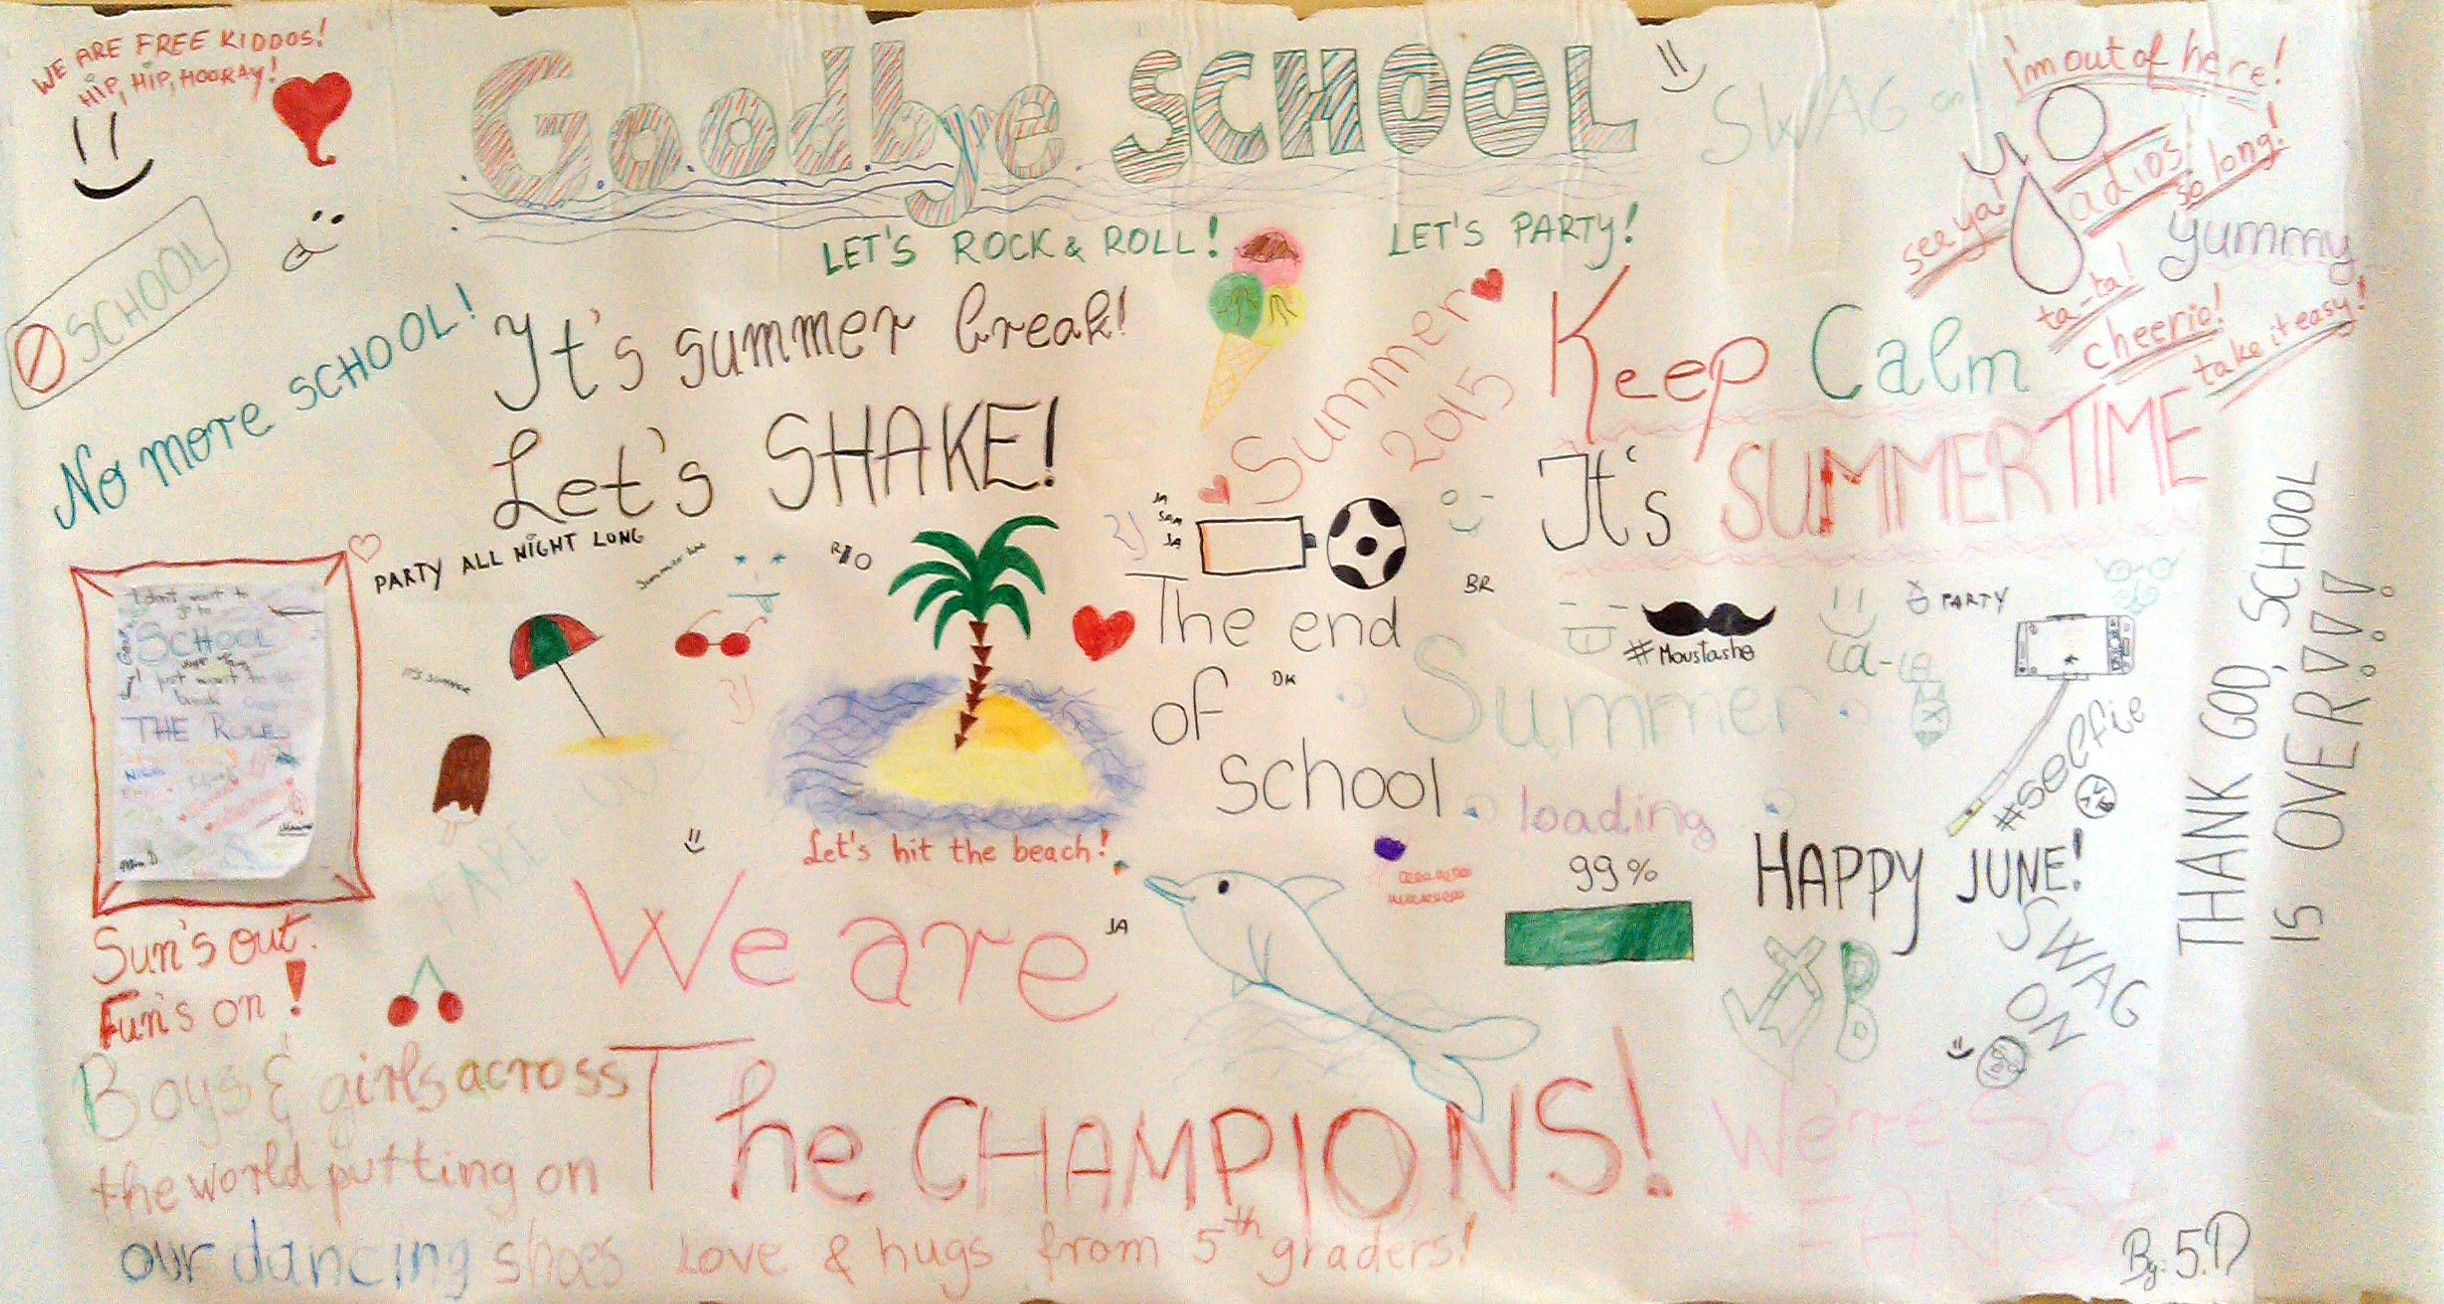 WE ARE FREE KIDDOS!
HIP, HIP, HOORAY!
Goodbye SCHOOL
SWAG on!
i'm out of here!
adios!
so long!
see ya!
yummy
ta-ta!
cheerio!
take it easy!
SCHOOL
No more SCHOOL!
LET'S ROCK & ROLL!
LET'S PARTY!
It's summer break!
Let's SHAKE!
Summer
2015
Keep Calm
It's SUMMERTIME
PARTY ALL NIGHT LONG
RIO
BR
I don't want to
go to
SCHOOL
just want to
break
THE RULES
The end
of
school
DK
#Moustashe
PARTY
La-La
#selfie
THANK GOD, SCHOOL
IS OVER!!!!
Summer
loading
99%
Let's hit the beach!
HAPPY JUNE!
SWAG
ON
TAKE
Sun's out.
Fun's on!
We are
JA
The CHAMPIONS!
Boys & girls across
the world putting on
our dancing shoes
love & hugs from 5th graders!
We're SO
FANCY
By: 5.D